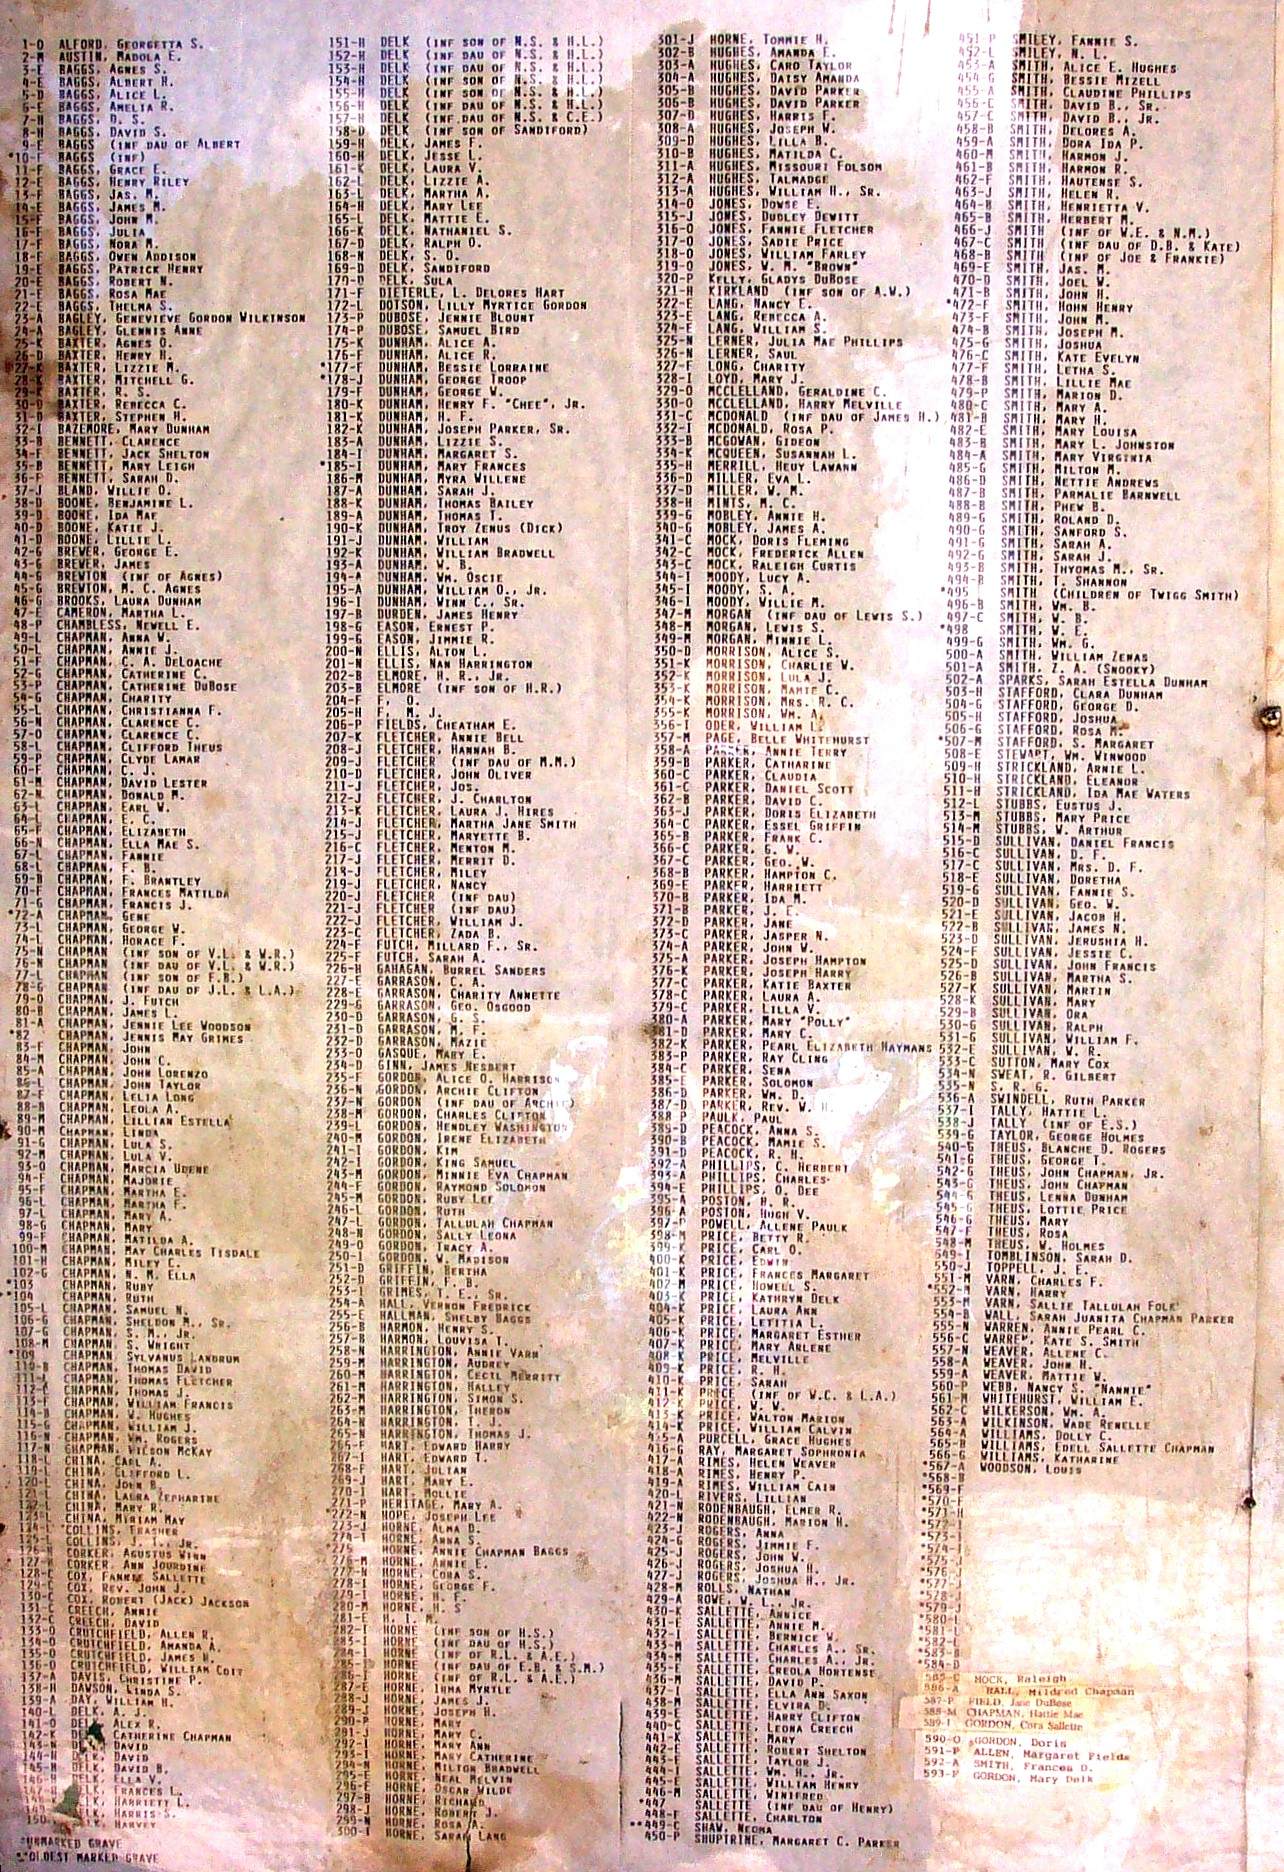 1-O ALFORD, GEORGETTA S.
2-M AUSTIN, MADOLA E.
3-E BAGGS, AGNES S.
4-E BAGGS, ALBERT H.
5-E BAGGS, ALICE L.
6-E BAGGS, AMELIA R.
7-H BAGGS, D. S.
8-H BAGGS, DAVID S.
9-E BAGGS (INF DAU OF ALBERT
*10-F BAGGS, (INF)
11-F BAGGS, GRACE E.
12-E BAGGS, HENRY RILEY
13-F BAGGS, JAS. M.
14-E BAGGS, JAMES M.
15-F BAGGS, JOHN M.
16-F BAGGS, JULIA
17-F BAGGS, NORA M.
18-F BAGGS, OWEN ADDISON
19-E BAGGS, PATRICK HENRY
20-E BAGGS, ROBERT N.
21-E BAGGS, ROSA MAE
22-E BAGGS, THELMA S.
23-A BAGLEY, GENEVIEVE GORDON WILKINSON
24-A BAGLEY, GLENNIS ANNE
25-K BAXTER, AGNES O.
26-D BAXTER, HENRY H.
27-K BAXTER, LIZZIE M.
28-K BAXTER, MITCHELL G.
29-K BAXTER, R. S.
30-D BAXTER, REBECCA C.
31-D BAXTER, STEPHEN H.
32-I BAZEMORE, MARY DUNHAM
33-B BENNETT, CLARENCE
34-F BENNETT, JACK SHELTON
35-B BENNETT, MARY LEIGH
36-F BENNETT, SARAH D.
37-J BLAND, WILLIE O.
38-D BOONE, BENJAMINE L.
39-D BOONE, IDA MAE
40-D BOONE, KATIE J.
41-D BOONE, LILLIE L.
42-G BREWER, GEORGE E.
43-G BREWER, JAMES
44-G BREWTON (INF OF AGNES)
45-G BREWTON, M. C. AGNES
46-G BROOKS, LAURA DUNHAM
47-E CAMERON, MARTHA L.
48-P CHAMBLESS, NEWELL E.
49-L CHAPMAN, ANNA W.
50-L CHAPMAN, ANNIE J.
51-F CHAPMAN, C. A. DELOACHE
52-G CHAPMAN, CATHERINE C.
53-P CHAPMAN, CATHERINE DUBOSE
54-G CHAPMAN, CHARITY
55-L CHAPMAN, CHRISTIANNA F.
56-N CHAPMAN, CLARENCE C.
57-O CHAPMAN, CLARENCE C.
58-L CHAPMAN, CLIFFORD THEUS
59-P CHAPMAN, CLYDE LAMAR
60-F CHAPMAN, C. J.
61-M CHAPMAN, DAVID LESTER
62-N CHAPMAN, DONALD M.
63-L CHAPMAN, EARL W.
64-L CHAPMAN, E. C.
65-F CHAPMAN, ELIZABETH
66-N CHAPMAN, ELLA MAE S.
67-L CHAPMAN, FANNIE
68-L CHAPMAN, F. B.
69-B CHAPMAN, F. BRANTLEY
70-F CHAPMAN, FRANCES MATILDA
71-G CHAPMAN, FRANCIS J.
*72-A CHAPMAN, GENE
73-L CHAPMAN, GEORGE W.
74-L CHAPMAN, HORACE F.
75-N CHAPMAN (INF SON OF V.L. & W.R.)
76-N CHAPMAN (INF DAU OF V.L. & W.R.)
77-L CHAPMAN (INF SON OF F.B.)
78-G CHAPMAN (INF DAU OF J.L. & L.A.)
79-O CHAPMAN, J. FUTCH
80-H CHAPMAN, JAMES L.
81-A CHAPMAN, JENNIE LEE WOODSON
*82 CHAPMAN, JENNIS MAY GRIMES
83-F CHAPMAN, JOHN
84-M CHAPMAN, JOHN C.
85-A CHAPMAN, JOHN LORENZO
86-L CHAPMAN, JOHN TAYLOR
87-F CHAPMAN, LELIA LONG
88-H CHAPMAN, LEOLA A.
89-M CHAPMAN, LILLIAN ESTELLA
90-M CHAPMAN, LINDA
91-G CHAPMAN, LULA S.
92-M CHAPMAN, LULA V.
93-O CHAPMAN, MARCIA UDENE
94-F CHAPMAN, MAJORIE
95-F CHAPMAN, MARTHA E.
96-L CHAPMAN, MARTHA F.
97-L CHAPMAN, MARY A.
98-G CHAPMAN, MARY
99-F CHAPMAN, MATILDA A.
100-M CHAPMAN, MAY CHARLES TISDALE
101-H CHAPMAN, MILEY C.
102-G CHAPMAN, N. M. ELLA
*103 CHAPMAN, RUBY
*104 CHAPMAN, RUTH
105-L CHAPMAN, SAMUEL N.
106-G CHAPMAN, SHELDON M., SR.
107-G CHAPMAN, S. M., JR.
108-M CHAPMAN, S. WRIGHT
*109 CHAPMAN, SYLVANUS LANDRUM
110-B CHAPMAN, THOMAS DAVID
111-A CHAPMAN, THOMAS FLETCHER
112-C CHAPMAN, THOMAS J.
113-F CHAPMAN, WILLIAM FRANCIS
114-B CHAPMAN, W. HUGHES
115-G CHAPMAN, WILLIAM J.
116-N CHAPMAN, WM. ROGERS
117-N CHAPMAN, WILSON MCKAY
118-L CHINA, CARL A.
119-L CHINA, CLIFFORD L.
120-L CHINA, JOHN B.
121-L CHINA, LAURA ZEPHARINE
122-L CHINA, MARY R.
123-L CHINA, MIRIAM MAY
124-L COLLINS, FRASHER
125-L COLLINS, J. T., JR.
126-H CORKER, AGUSTUS WINN
127-H CORKER, ANN JOURDINE
128-C COX, FANNIE SALLETTE
129-C COX, REV. JOHN J.
130-C COX, ROBERT (JACK) JACKSON
131-C CREECH, ANNIE
132-C CREECH, DAVID
133-O CRUTCHFIELD, ALLEN R.
134-O CRUTCHFIELD, AMANDA A.
135-O CRUTCHFIELD, JAMES H.
136-O CRUTCHFIELD, WILLIAM COIT
137-A DAVIS, CHRISTINE P.
138-H DAWSON, LINDA S.
139-A DAY, WILLIAM H.
140-L DELK, A. J.
141-O ALEX R.
142-K CATHERINE CHAPMAN
143-N DAVID
144-H DELK, DAVID
145-H DELK, DAVID B.
146-H DELK, ELLA V.
DELK, FRANCES L.
HARRIETT L.
HARRIS S.
150- HARVEY
*UNMARKED GRAVE
**OLDEST MARKED GRAVE
151-H DELK (INF SON OF N.S. & H.L.)
152-H DELK (INF DAU OF N.S. & H.L.)
153-H DELK (INF DAU OF N.S. & H.L.)
154-H DELK (INF SON OF N.S. & H.L.)
155-H DELK (INF SON OF N.S. & H.L.)
156-H DELK (INF DAU OF N.S. & H.L.)
157-H DELK (INF DAU OF N.S. & C.E.)
158-D DELK (INF SON OF SANDIFORD)
159-H DELK, JAMES F.
160-H DELK, JESSE L.
161-K DELK, LAURA V.
162-L DELK, LIZZIE A.
163-L DELK, MARTHA A.
164-H DELK, MARY LEE
165-L DELK, MATTIE E.
166-K DELK, NATHANIEL S.
167-D DELK, RALPH O.
168-N DELK, S. O.
169-D DELK, SANDIFORD
170-D DELK, SULA
171-F DIETERLE, L. DELORES HART
172-L DOTSON, LILLY MYRTICE GORDON
173-P DUBOSE, JENNIE BLOUNT
174-P DUBOSE, SAMUEL BIRD
175-K DUNHAM, ALICE A.
176-F DUNHAM, ALICE R.
*177-F DUNHAM, BESSIE LORRAINE
*178-J DUNHAM, GEORGE TROOP
179-F DUNHAM, GEORGE W.
180-K DUNHAM, HENRY F. "CHEE", JR.
181-K DUNHAM, H. F.
182-K DUNHAM, JOSEPH PARKER, SR.
183-A DUNHAM, LIZZIE S.
184-I DUNHAM, MARGARET S.
*185-I DUNHAM, MARY FRANCES
186-M DUNHAM, MYRA WILLENE
187-A DUNHAM, SARAH J.
188-K DUNHAM, THOMAS BAILEY
189-A DUNHAM, THOMAS T.
190-K DUNHAM, TROY ZENUS (DICK)
191-J DUNHAM, WILLIAM
192-K DUNHAM, WILLIAM BRADWELL
193-A DUNHAM, W. B.
194-A DUNHAM, WM. OSCIE
195-A DUNHAM, WILLIAM O., JR.
196-I DUNHAM, WINN C., SR.
197-B DURDEN, JAMES HENRY
198-G EASON, ERNEST P.
199-G EASON, JIMMIE R.
200-N ELLIS, ALTON L.
201-N ELLIS, NAN HARRINGTON
202-B ELMORE, H. R., JR.
203-B ELMORE (INF SON OF H.R.)
204-F F., O.
205-H F., M. J.
206-P FIELDS, CHEATHAM E.
207-K FLETCHER, ANNIE BELL
208-J FLETCHER, HANNAH B.
209-J FLETCHER (INF DAU OF M.M.)
210-D FLETCHER, JOHN OLIVER
211-J FLETCHER, JOS.
212-J FLETCHER, J. CHARLTON
213-K FLETCHER, LAURA J. HIRES
214-J FLETCHER, MARTHA JANE SMITH
215-J FLETCHER, MARYETTE B.
216-C FLETCHER, MENTON M.
217-J FLETCHER, MERRIT D.
218-J FLETCHER, MILEY
219-J FLETCHER, NANCY
220-J FLETCHER (INF DAU)
221-J FLETCHER (INF DAU)
222-J FLETCHER, WILLIAM J.
223-C FLETCHER, ZADA B.
224-F FUTCH, MILLARD F., SR.
225-F FUTCH, SARAH A.
226-H GAHAGAN, BURREL SANDERS
227-E GARRASON, C. A.
228-E GARRASON, CHARITY ANNETTE
229-G GARRASON, GEO. OSGOOD
230-D GARRASON, G. S.
231-D GARRASON, M. F.
232-D GARRASON, MAZIE
233-O GASQUE, MARY E.
234-D GINN, JAMES NESBERT
235-F GORDON, ALICE O. HARRISON
236-N GORDON, ARCHIE CLIFTON
237-N GORDON (INF DAU OF ARCHIE)
238-M GORDON, CHARLES CLIFTON
239-L GORDON, HENDLEY WASHINGTON
240-M GORDON, IRENE ELIZABETH
241-I GORDON, KIM
242-I GORDON, KING SAMUEL
243-M GORDON, MINNIE EVA CHAPMAN
244-E GORDON, RAYMOND SOLOMON
245-M GORDON, RUBY LEE
246-L GORDON, RUTH
247-L GORDON, TALLULAH CHAPMAN
248-N GORDON, SALLY LEONA
249-O GORDON, TRACY A.
250-I GORDON, W. MADISON
251-D GRIFFIN, BERTHA
252-D GRIFFIN, F. B.
253-I GRIMES, T. E., SR.
254-A HALL, VERNON FREDRICK
255-E HALLMAN, SHELBY BAGGS
256-B HARMON, HENRY S.
257-B HARMON, LOUVISA T.
258-N HARRINGTON, ANNIE VARN
259-M HARRINGTON, AUDREY
260-M HARRINGTON, CECIL MERRITT
261-M HARRINGTON, HALLEY
262-M HARRINGTON, SIMON S.
263-M HARRINGTON, THERON
264-N HARRINGTON, T. J.
265-N HARRINGTON, THOMAS J.
266-F HART, EDWARD HARRY
267-I HART, EDWARD T.
268-F HART, JULIAN
269-J HART, MARY E.
270-I HART, MOLLIE
271-P HERITAGE, MARY A.
*272-N HOPE, JOSEPH LEE
273-J HORNE, ALMA D.
274-I HORNE, ANNA S.
*275 HORNE, ANNIE CHAPMAN BAGGS
276-M HORNE, ANNIE E.
277-N HORNE, CORA S.
278-I HORNE, GEORGE F.
279-I HORNE, H. F.
280-M HORNE, H. S
281-E H. I. M.
282-I HORNE (INF SON OF H.S.)
283-I HORNE (INF DAU OF H.S.)
284-I HORNE (INF OF R.L. & A.E.)
285- HORNE (INF DAU OF E.B. & S.M.)
286-I HORNE (INF OF R.L. & A.E.)
287-E HORNE, IRMA MYRTLE
288-J HORNE, JAMES J.
289-J HORNE, JOSEPH H.
290-P HORNE, MARY
291-J HORNE, MARY C.
292-I HORNE, MARY ANN
293-I HORNE, MARY CATHERINE
294-N HORNE, MILTON BRADWELL
295-E HORNE, NEAL MELVIN
296-E HORNE, OSCAR WILDE
297-B HORNE, RICHARD
298-J HORNE, ROBERT J.
299-N HORNE, ROSA A.
300-I HORNE, SARAH LANG
301-J HORNE, TOMMIE H.
302-B HUGHES, AMANDA E.
303-A HUGHES, CARO TAYLOR
304-A HUGHES, DAISY AMANDA
305-B HUGHES, DAVID PARKER
306-B HUGHES, DAVID PARKER
307-D HUGHES, HARRIS F.
308-A HUGHES, JOSEPH W.
309-D HUGHES, LILLA B.
310-B HUGHES, MATILDA C.
311-A HUGHES, MISSOURI FOLSOM
312-A HUGHES, TALMADGE
313-A HUGHES, WILLIAM H., SR.
314-O JONES, DOWSE E.
315-J JONES, DUDLEY DEWITT
316-O JONES, FANNIE FLETCHER
317-O JONES, SADIE PRICE
318-O JONES, WILLIAM FARLEY
319-O JONES, W. M. "BROWN"
320-P KELLY, GLADYS DUBOSE
321-H KIRKLAND (INF SON OF A.W.)
322-E LANG, NANCY E.
323-E LANG, REBECCA A.
324-E LANG, WILLIAM S.
325-N LERNER, JULIA MAE PHILLIPS
326-N LERNER, SAUL
327-F LONG, CHARITY
328-I LOYD, MARY J.
329-O MCCLELLAND, GERALDINE C.
330-O MCCLELLAND, HARRY MELVILLE
331-C MCDONALD (INF DAU OF JAMES H.)
332-I MCDONALD, ROSA P.
333-B MCGOWAN, GIDEON
334-K MCQUEEN, SUSANNAH L.
335-H MERRILL, HEUY LAWANN
336-D MILLER, EVA L.
337-D MILLER, W. M.
338-H MINTS, M. C.
339-G MOBLEY, ANNIE H.
340-G MOBLEY, JAMES A.
341-C MOCK, DORIS FLEMING
342-C MOCK, FREDERICK ALLEN
343-C MOCK, RALEIGH CURTIS
344-I MOODY, LUCY A.
345-I MOODY, S. A.
346-I MOODY, WILLIE M.
347-M MORGAN (INF DAU OF LEWIS S.)
348-M MORGAN, LEWIS S.
349-M MORGAN, MINNIE L.
350-D MORRISON, ALICE S.
351-K MORRISON, CHARLIE W.
352-K MORRISON, LULA J.
353-K MORRISON, MAMIE C.
354-K MORRISON, MRS. R. C.
355-K MORRISON, WM. A.
356-I ODER, WILLIAM L.
357-M PAGE, BELLE WHITEHURST
358-A PARKER, ANNIE TERRY
359-B PARKER, CATHARINE
360-C PARKER, CLAUDIA
361-C PARKER, DANIEL SCOTT
362-B PARKER, DAVID C.
363-J PARKER, DORIS ELIZABETH
364-C PARKER, ESSEL GRIFFIN
365-B PARKER, FRANK C.
366-C PARKER, G. W.
367-C PARKER, GEO. W.
368-B PARKER, HAMPTON C.
369-E PARKER, HARRIETT
370-B PARKER, IDA M.
371-B PARKER, J. E.
372-D PARKER, JANE
373-C PARKER, JASPER N.
374-A PARKER, JOHN W.
375-A PARKER, JOSEPH HAMPTON
376-K PARKER, JOSEPH HARRY
377-C PARKER, KATIE BAXTER
378-C PARKER, LAURA A.
379-C PARKER, LILLA V.
380-A PARKER, MARY "POLLY"
381-D PARKER, MARY C.
382-K PARKER, PEARL ELIZABETH HAYMANS
383-P PARKER, RAY CLING
384-C PARKER, SENA
385-E PARKER, SOLOMON
386-D PARKER, WM. D.
387-D PARKER, REV. W. H.
388-P PAULK, PAUL
389-D PEACOCK, ANNA S.
390-B PEACOCK, MAMIE S.
391-D PEACOCK, R. H.
392-A PHILLIPS, C. HERBERT
393-A PHILLIPS, CHARLES
394-E PHILLIPS, O. DEE
395-A POSTON, H. R.
396-A POSTON, HUGH V.
397-P POWELL, ALLENE PAULK
398-M PRICE, BETTY R.
399-K PRICE, CARL O.
400-K PRICE, EDWIN
401-K PRICE, FRANCES MARGARET
402-M PRICE, HOWELL S.
403-K PRICE, KATHRYN DELK
404-K PRICE, LAURA ANN
405-K PRICE, LETITIA L.
406-K PRICE, MARGARET ESTHER
407-K PRICE, MARY ARLENE
408-K PRICE, MELVILLE
409-K PRICE, R. H.
410-K PRICE, SARAH
411-K PRICE (INF OF W.C. & L.A.)
412-K PRICE, W. W.
413-K PRICE, WALTON MARION
414-K PRICE, WILLIAM CALVIN
415-A PURCELL, GRACE HUGHES
416-G RAY, MARGARET SOPHRONIA
417-A RIMES, HELEN WEAVER
418-A RIMES, HENRY P.
419-A RIMES, WILLIAM CAIN
420-L RIVERS, LILLIAN
421-N RODENBAUGH, ELMER R.
422-N RODENBAUGH, MARION H.
423-J ROGERS, ANNA
424-J ROGERS, JIMMIE F.
425-J ROGERS, JOHN W.
426-J ROGERS, JOSHUA H.
427-J ROGERS, JOSHUA H., JR.
428-M ROLLS, NATHAN
429-A ROWE, W. L., JR.
430-K SALLETTE, ANNICE
431-F SALLETTE, ANNIE M.
432-I SALLETTE, BERNICE W.
433-M SALLETTE, CHARLES A., SR.
434-M SALLETTE, CHARLES A., JR.
435-E SALLETTE, CREOLA HORTENSE
436-E SALLETTE, DAVID P.
437-J SALLETTE, ELLA ANN SAXON
438-M SALLETTE, ELVIRA D.
439-E SALLETTE, HARRY CLIFTON
440-C SALLETTE, LEONA CREECH
441-K SALLETTE, MARY
442-E SALLETTE, ROBERT SHELTON
443-E SALLETTE, TAYLOR J.
444-I SALLETTE, WM. H., JR.
445-E SALLETTE, WILLIAM HENRY
446-M SALLETTE, WINIFRED
*447 SALLETTE (INF DAU OF HENRY)
448-F SALLETTE, CHARLTON
**449-C SHAW, NEOMA
450-P SHUPTRINE, MARGARET C. PARKER
451-P SMILEY, FANNIE S.
452-L SMILEY, N. L.
453-A SMITH, ALICE E. HUGHES
454-G SMITH, BESSIE MIZELL
455-A SMITH, CLAUDINE PHILLIPS
456-C SMITH, DAVID B., SR.
457-C SMITH, DAVID B., JR.
458-B SMITH, DELORES A.
459-A SMITH, DORA IDA P.
460-M SMITH, HARMON J.
461-B SMITH, HARMON R.
462-F SMITH, HAUTENSE S.
463-J SMITH, HELEN R.
464-H SMITH, HENRIETTA V.
465-B SMITH, HERBERT M.
466-J SMITH (INF OF W.E. & N.M.)
467-C SMITH (INF DAU OF D.B. & KATE)
468-B SMITH (INF OF JOE & FRANKIE)
469-E SMITH, JAS. M.
470-D SMITH, JOEL W.
471-B SMITH, JOHN H.
*472-F SMITH, HOHN HENRY
473-F SMITH, JOHN M.
474-B SMITH, JOSEPH M.
475-G SMITH, JOSHUA
476-C SMITH, KATE EVELYN
477-F SMITH, LETHA S.
478-B SMITH, LILLIE MAE
479-P SMITH, MARION D.
480-C SMITH, MARY A.
481-B SMITH, MARY H.
482-E SMITH, MARY LOUISA
483-B SMITH, MARY L. JOHNSTON
484-A SMITH, MARY VIRGINIA
485-G SMITH, MILTON M.
486-B SMITH, NETTIE ANDREWS
487-B SMITH, PARMALIE BARNWELL
488-B SMITH, PHEW B.
489-G SMITH, ROLAND D.
490-G SMITH, SANFORD S.
491-G SMITH, SARAH A.
492-G SMITH, SARAH J.
493-B SMITH, THYOMAS M., SR.
494-B SMITH, T. SHANNON
*495 SMITH (CHILDREN OF TWIGG SMITH)
496-B SMITH, WM. B.
497-C SMITH, W. B.
*498 SMITH, W. E.
499-G SMITH, WM. G.
500-A SMITH, WILLIAM ZENAS
501-A SMITH, Z. A. (SNOOKY)
502-A SPARKS, SARAH ESTELLA DUNHAM
503-H STAFFORD, CLARA DUNHAM
504-G STAFFORD, GEORGE D.
505-H STAFFORD, JOSHUA
506-G STAFFORD, ROSA M.
*507-M STAFFORD, S. MARGARET
508-E STEWAPT, WM. WINWOOD
509-H STRICKLAND, ARNIE L.
510-H STRICKLAND, ELEANOR
511-H STRICKLAND, IDA MAE WATERS
512-L STUBBS, EUSTUS J.
513-M STUBBS, MARY PRICE
514-M STUBBS, W. ARTHUR
515-D SULLIVAN, DANIEL FRANCIS
516-C SULLIVAN, D. F.
517-C SULLIVAN, MRS. D. F.
518-E SULLIVAN, DORETHA
519-G SULLIVAN, FANNIE S.
520-D SULLIVAN, GEO. W.
521-E SULLIVAN, JACOB H.
522-B SULLIVAN, JAMES N.
523-D SULLIVAN, JERUSHIA H.
524-F SULLIVAN, JESSIE C.
525-D SULLIVAN, JOHN FRANCIS
526-B SULLIVAN, MARTHA S.
527-K SULLIVAN, MARTIN
528-K SULLIVAN, MARY
529-B SULLIVAN, ORA
530-G SULLIVAN, RALPH
531-G SULLIVAN, WILLIAM F.
532-E SULLIVAN, W. R.
533-C SUTTON, MARY COX
534-N SWEAT, R. GILBERT
535-N S. R. G.
536-A SWINDELL, RUTH PARKER
537-I TALLY, HATTIE L.
538-J TALLY (INF OF E.S.)
539-G TAYLOR, GEORGE HOLMES
540-G THEUS, BLANCHE D. ROGERS
541-G THEUS, GEORGE T.
542-G THEUS, JOHN CHAPMAN, JR.
543-G THEUS, JOHN CHAPMAN
544-G THEUS, LENNA DUNHAM
545-G THEUS, LOTTIE PRICE
546-G THEUS, MARY
547-F THEUS, ROSA
548-M THEUS, W. HOLMES
549-I TOMBLINSON, SARAH D.
550-J TOPPELL, J. E.
551-M VARN, CHARLES F.
*552-M VARN, HARRY
553-M VARN, SALLIE TALLULAH FOLK
554-B WALL, SARAH JUANITA CHAPMAN PARKER
555-N WARREN, ANNIE PEARL C.
556-C WARREN, KATE S. SMITH
557-N WEAVER, ALLENE C.
558-A WEAVER, JOHN H.
559-A WEAVER, MATTIE W.
560-P WEBB, NANCY S. "NANNIE"
561-M WHITEHURST, WILLIAM E.
562-C WILKERSON, WM. A.
563-A WILKINSON, WADE RENELLE
564-A WILLIAMS, DOLLY C.
565-B WILLIAMS, EDELL SALLETTE CHAPMAN
566-G WILLIAMS, KATHERINE
*567-A WOODSON, LOUIS
*568-B
*569-F
*570-F
*571-H
*572-I
*573-I
*574-J
*575-J
*576-J
*577-J
*578-J
*579-J
*580-L
*581-L
*582-L
*583-B
*584-D
585-C MOCK, Raleigh
586-A HALL, Mildred Chapman
587-P FIELD, Jane DuBose
588-M CHAPMAN, Hattie Mae
589-I GORDON, Cora Sallette
590-O GORDON, Doris
591-P ALLEN, Margaret Fields
592-A SMITH, Frances D.
593-F GORDON, Mary Delk